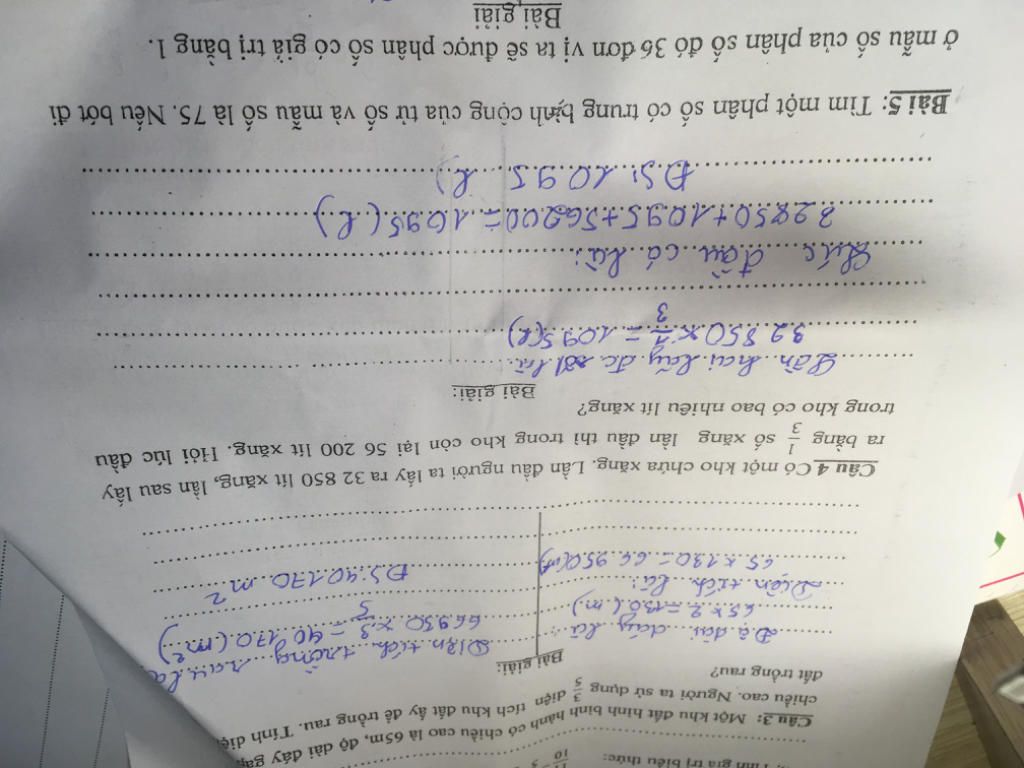 Tính giá trị biểu thức:
Câu 3: Một khu đất hình bình hành có chiều cao là 65m, độ dài đáy gấp
chiều cao. Người ta sử dụng 3/5 diện tích khu đất ấy để trồng rau. Tính diện
đất trồng rau?
Bài giải:
Độ dài đáy là
65 x 2 = 130 (m)
Diện tích là:
65 x 130 = 66 950 (m²)
Diện tích trồng rau là
66950 x 3/5 = 40170 (m²)
ĐS: 40170 m²
Câu 4 Có một kho chứa xăng. Lần đầu người ta lấy ra 32 850 lít xăng, lần sau lấy
ra bằng 1/3 số xăng lần đầu thì trong kho còn lại 56 200 lít xăng. Hỏi lúc đầu
trong kho có bao nhiêu lít xăng?
Bài giải:
Lần hai lấy đc là
32 850 x 1/3 = 1095 (l)
Lúc đầu có là:
32850 + 1095 + 56200 = 1095 (l)
ĐS: 1095 l)
Bài 5: Tìm một phân số có trung bình cộng của tử số và mẫu số là 75. Nếu bớt đi
ở mẫu số của phân số đó 36 đơn vị ta sẽ được phân số có giá trị bằng 1.
Bài giải